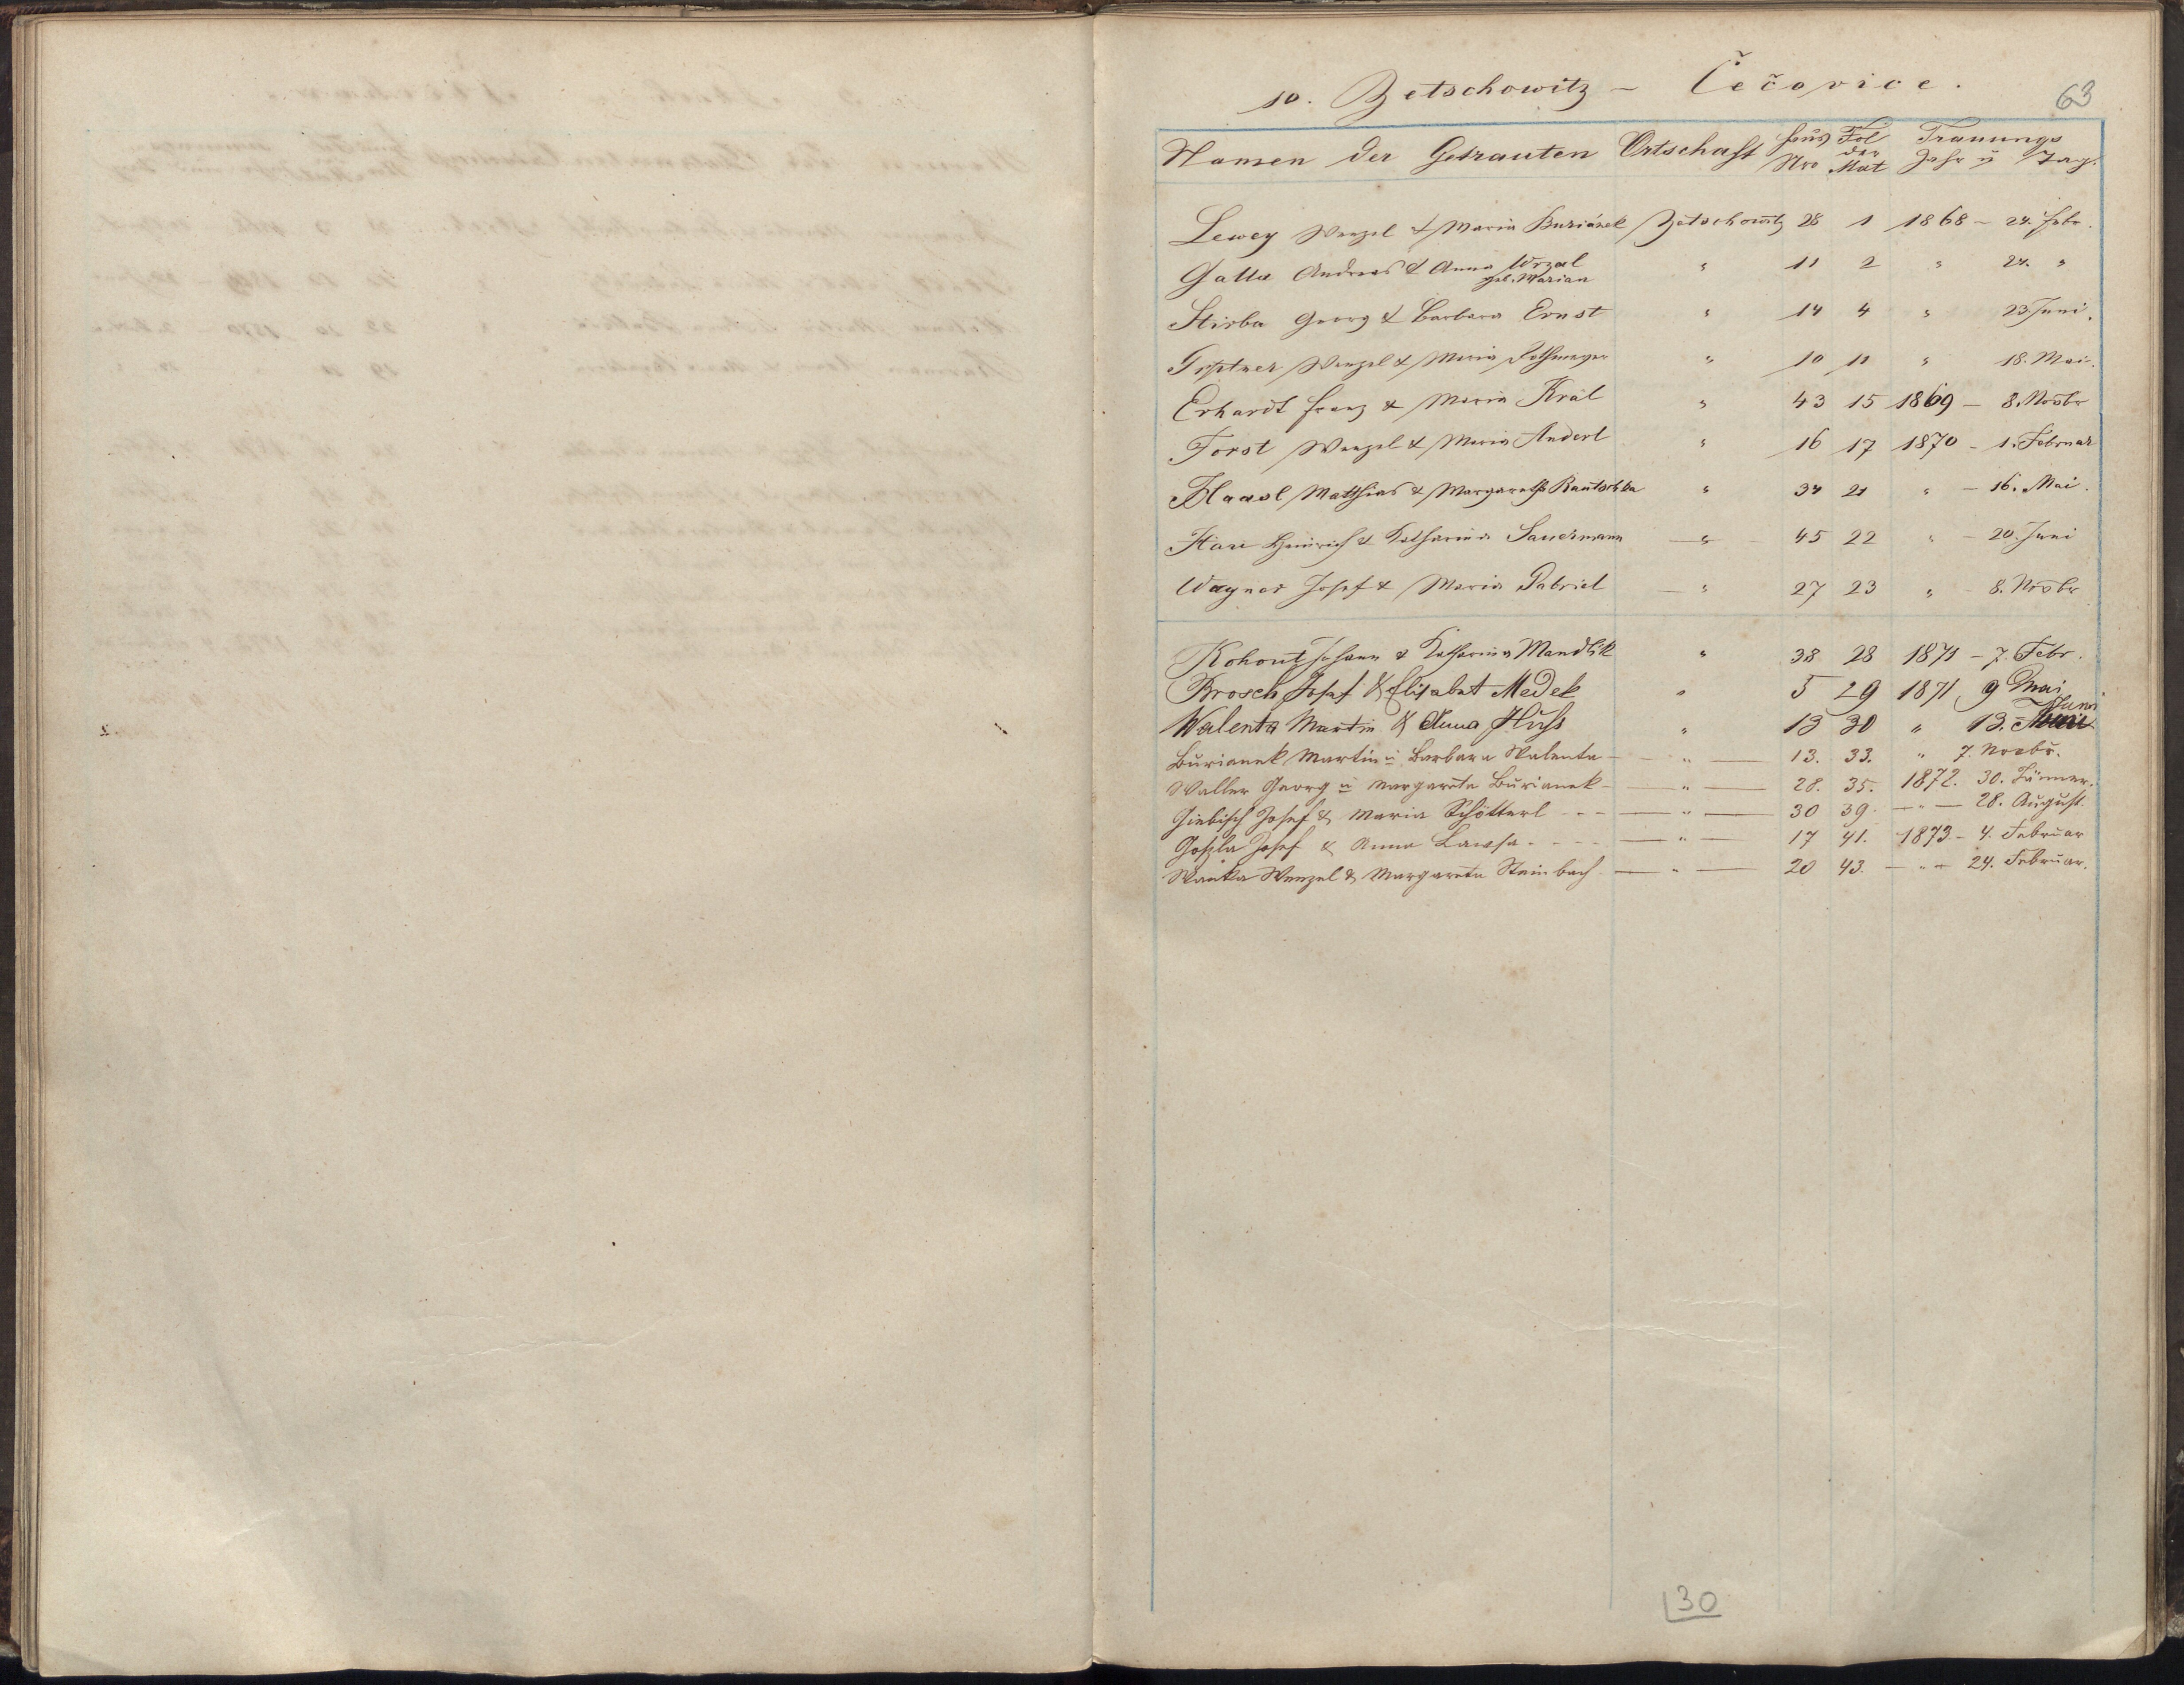 10. Zetschowitz – Čečovice.
63
Namen der Getrauten Ortschaft Haus Nro Fol der Mat Trauungs Jahr u Tag.
Lewey Wenzel & Maria Buriánek Zetschowitz 28 1 1868 – 24. Febr.
Galla Andreas & Anna Wrzal geb. Marian " 11 2 " 24. "
Stirba Georg & Barbara Ernst " 14 4 " 23. Juni.
Wenzel & Maria " 10 11 " 18. Mai.
Erhardt Franz & Maria Král " 43 15 1869 – 8. Novbr
Forst Wenzel & Maria Anderl " 16 17 1870 – 1. Februar
Haasl Matthias & Margaretha Rautschka " 34 21 " – 16. Mai.
Heinrich & Katharina Sauermann – " – 45 22 " – 20. Juni
Wagner Josef & Maria Gabriel – " 27 23 " – 8. Novbr
Kohout Johann & Katharina Mandlik " 38 28 1871 – 7. Febr.
Brosch Josef & Elisabet Medek " 5 29 1871 9 Mai
Walenta Martin & Anna Huss " 13 30 " 13. Juni
Burianek Martin u Barbara Walenta – " – 13. 33. " 7. Novbr.
Waller Georg u Margareta Burianek – – " – 28. 35. 1872. 30. Jänner.
Giebisch Josef & Maria Schötterl - - – " – 30 39. – " – 28. August.
Josef & Anna Lawsa - - - – " – 17 41. 1873 – 4. Februar
Wanka Wenzel & Margareta Steinbach. – " – 20 43. – " – 24. Februar.
30